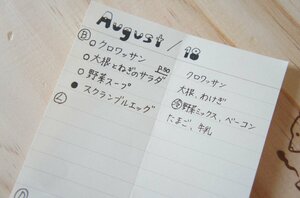 August / 18
Ⓑ ○ クロワッサン
○ 大根とねぎのサラダ
○ 野菜スープ
● スクランブルエッグ
Ⓛ
クロワッサン
大根、わけぎ
冷 野菜ミックス、ベーコン
たまご、牛乳